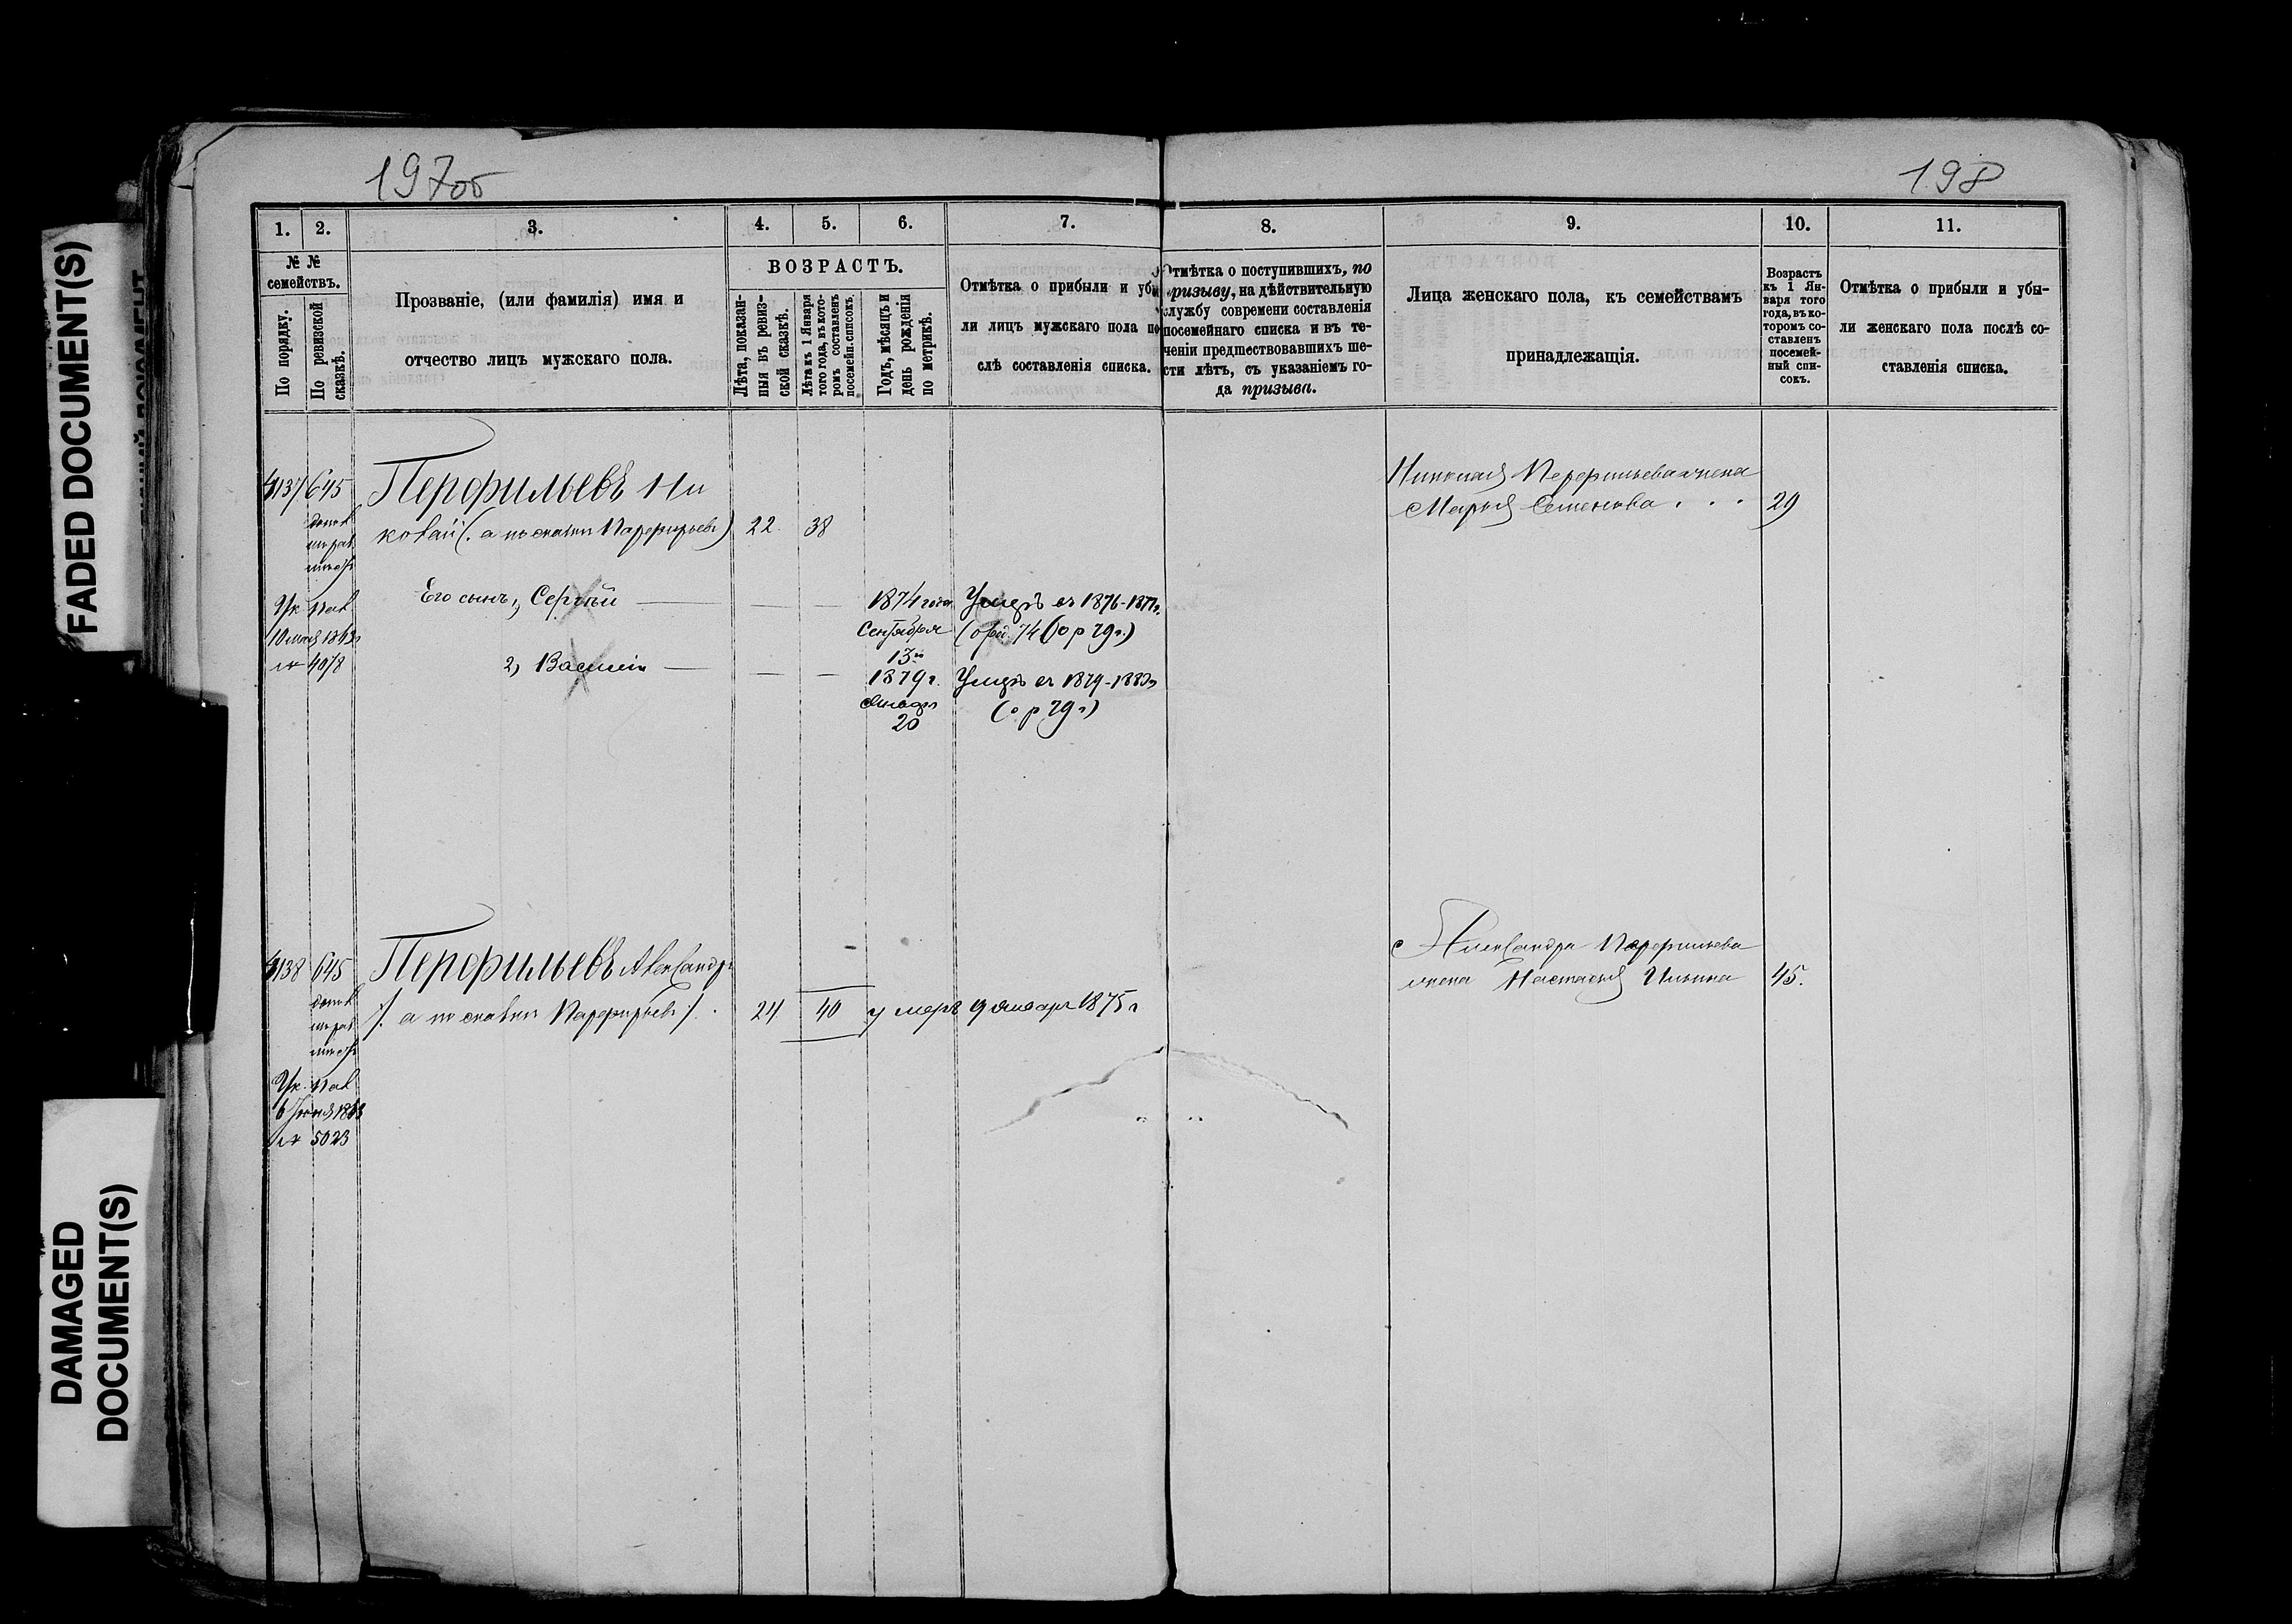 FADED DOCUMENT(S)
DAMAGED
DOCUMENT(S)
197об
198
1.
2.
3.
4.
5.
6.
7.
8.
9.
10.
11.
№ №
семействъ.
По порядку.
По ревизской
сказкѣ.
Прозваніе, (или фамилія) имя и
отчество лицъ мужскаго пола.
ВОЗРАСТЪ.
Лѣта, показан-
ныя въ ревиз-
ской сказкѣ.
Лѣта къ 1 Января
того года, въ кото-
ромъ составленъ
посемейн. списокъ.
Годъ, мѣсяцъ и
день рожденія
по метрикѣ.
Отмѣтка о прибыли и убы
ли лицъ мужскаго пола по
слѣ составленія списка.
Отмѣтка о поступившихъ, по
призыву, на дѣйствительную
службу современи составленія
посемейнаго списка и въ те-
ченіи предшествовавшихъ ше-
сти лѣтъ, съ указаніемъ го-
да призыва.
Лица женскаго пола, къ семействамъ
принадлежащія.
Возрастъ
къ 1 Ян-
варя того
года, въ ко-
торомъ со-
ставленъ
посемей-
ный спи-
сокъ.
Отмѣтка о прибыли и убы-
ли женскаго пола послѣ со-
ставленія списка.
4137 645 Перфильевъ Ни
колай (. а по сказки Парфирьевъ) 22. 38
Николая Перфильева жена
Марья Семенова . . . 29
Ук. Пал.
10 мая 1863г
№ 4078
Его сынъ, 1, Сергѣй
1874 года
Сентября
13го
Умеръ въ 1876-1877г.
74 (о р 79г.)
2, Василій
1879 г.
Января
20
Умеръ въ 1879-1880г
(о р 79г)
4138 645 Перфильевъ Александръ
/. а по сказки Парфирьевъ /. 24 40 умеръ 9 января 1875 г
Александра Парфильева
жена Настасья Ильина 45.
Ук. Пал.
6 Іюня 1863
№ 5023